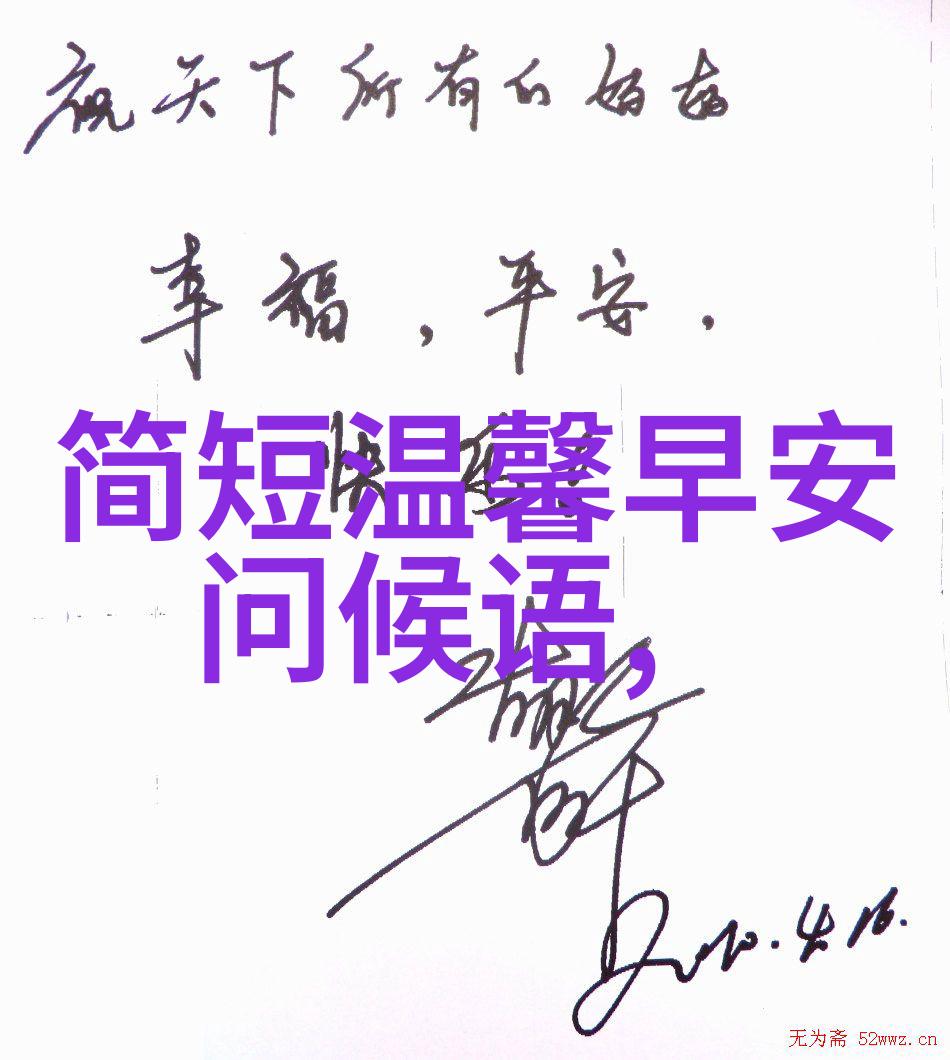 祝天下所有的妈妈
幸福，平安，
简短温馨早安
问候语，
2010.4.16.
无为斋 52wwz.cn